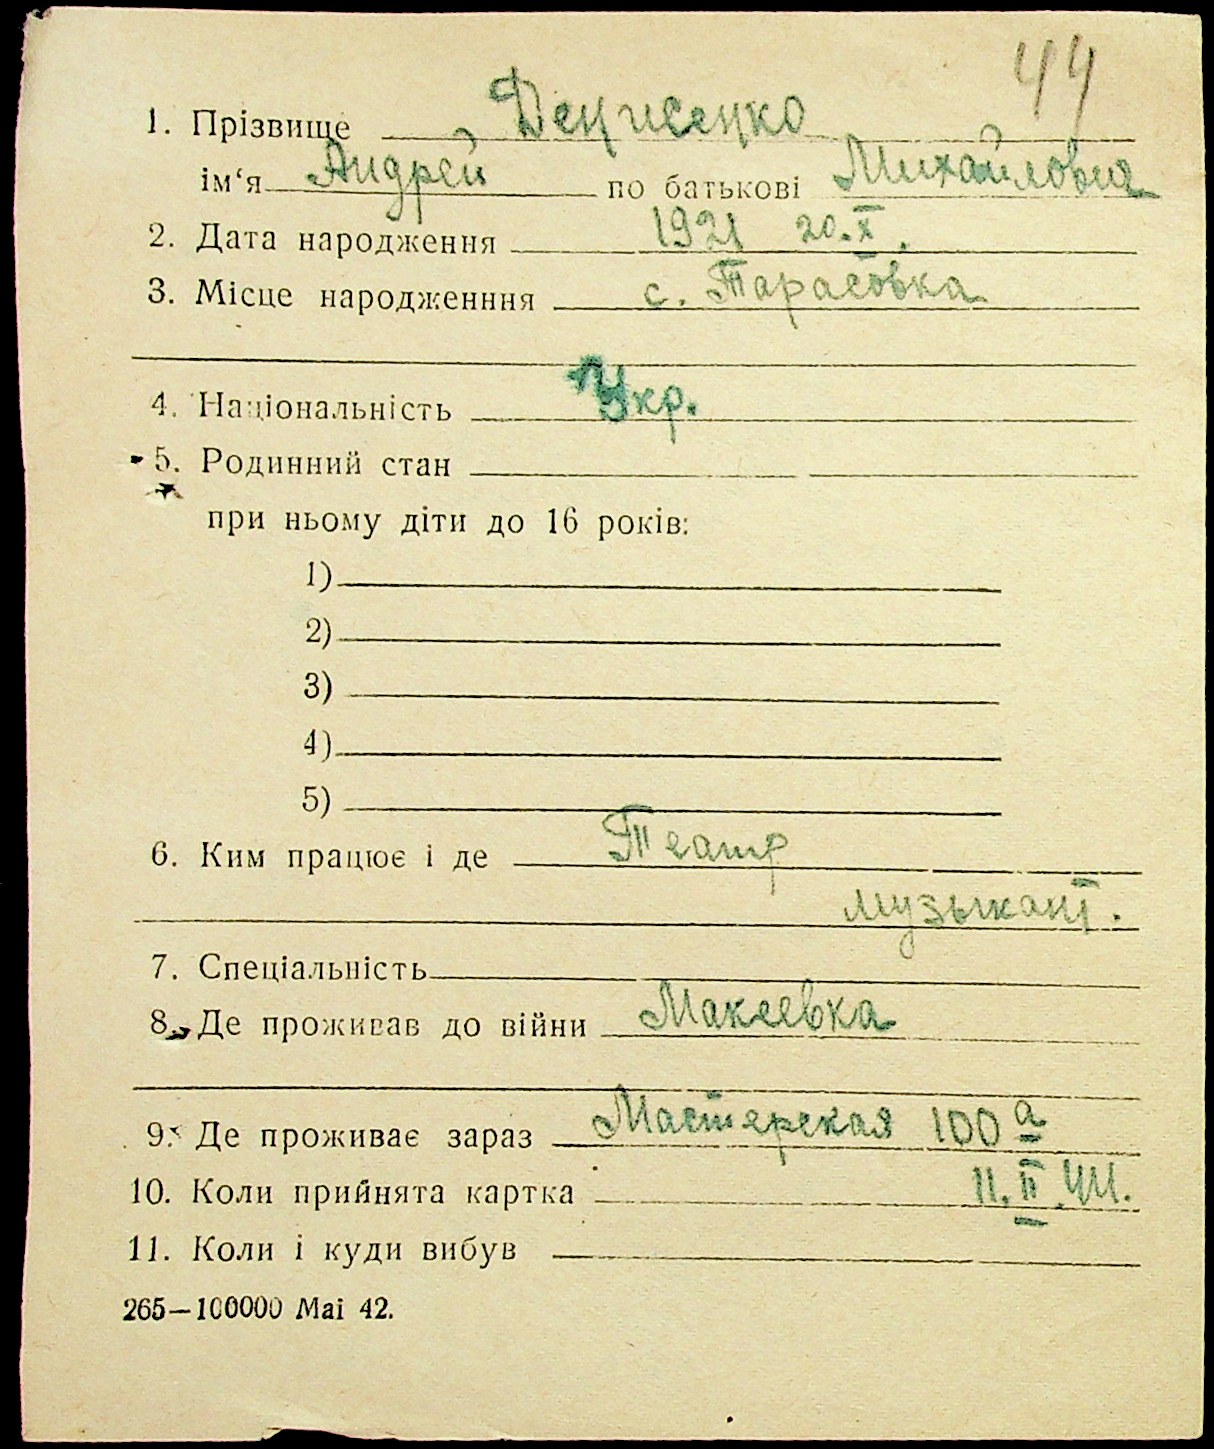 44
1. Прізвище Денисенко
ім‘я Андрей по батькові Михайлович
2. Дата народження 1921 20.X.
3. Місце народженння с. Тарасовка
4. Національність Укр.
5. Родинний стан
при ньому діти до 16 років:
1)
2)
3)
4)
5)
6. Ким працює і де Театр
музыкант.
7. Спеціальність
8. Де проживав до війни Макеевка
9. Де проживає зараз Мастерская 100 а
10. Коли прийнята картка 11.II.44.
11. Коли і куди вибув
265—100000 Mai 42.